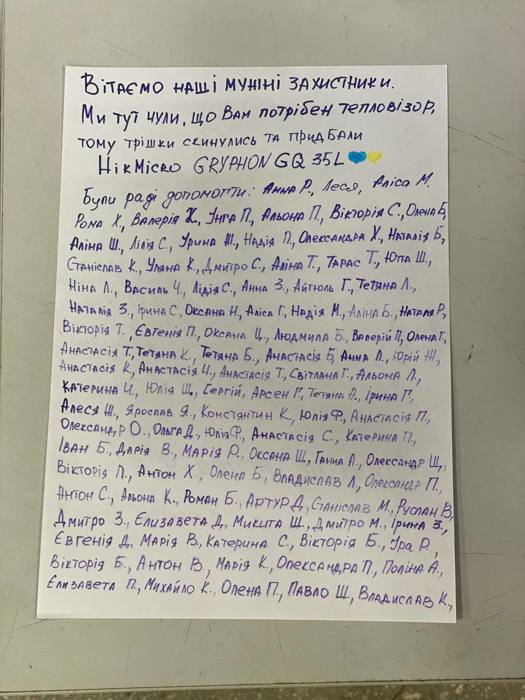 Вітаємо наші мужні захистники.
Ми тут чули, що Вам потрібен тепловізор,
тому трішки скинулись та придбали
HikMicro GRYPHON GQ 35L
Були раді допомогти: Анна Р., Леся, Аліса М.
Рома Х., Валерія Х, Інга П., Альона П., Вікторія С., Олена Б,
Аліна Ш., Лілія С., Ірина Ж., Надія П., Олександра Х., Наталія Б,
Станіслав К., Уляна К., Дмитро С., Аліна Т., Тарас Т., Юлія Ш.,
Ніна Л., Василь Ч., Лідія С., Анна З., Айгюль Г., Тетяна Л.,
Наталія З, Ірина С., Оксана Н, Аліса Г, Надія М., Аліна Б., Наталя Р,
Вікторія Т., Євгенія П., Оксана Ц., Людмила Б., Валерій П, Олена Г,
Анастасія Т, Тетяна К., Тетяна Б., Анастасія Б, Анна Л., Юрій Ж.,
Анастасія К, Анастасія Ч., Анастасія Т, Світлана Г., Альона Л.,
Катерина Ч., Юлія Щ., Сергій, Арсен Г, Тетяна А., Ірина Г.,
Алеся Ж., Ярослав Я., Константин К., Юлія Ф, Анастасія П.,
Олександр О., Ольга Д, Юлія Ф., Анастасія С., Катерина П.,
Іван Б., Дарія В., Марія Р., Оксана Ш, Ганна А., Олександр Щ,
Вікторія П., Антон Х., Олена Б, Владислав Л, Олександр П.,
Антон С., Альона К., Роман Б., Артур Д, Станіслав М., Руслан В,
Дмитро З., Єлизавета Д, Микита Ш., Дмитро М., Ірина З.,
Євгенія Д, Марія В, Катерина С., Вікторія Б., Іра Р.,
Вікторія Б., Антон В., Марія К., Олександра П., Поліна А.,
Єлизавета П., Михайло К., Олена П., Павло Ш, Владислав К.,